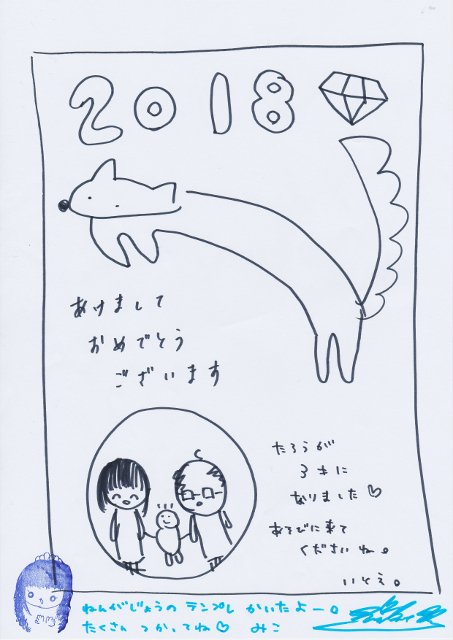 2018
あけまして
おめでとう
ございます
たろうが
3才に
なりました♡
あそびに来て
くださいね。
いとえ。
ねんがじょうの テンプレ かいたよー。
たくさん つかってね♡ みこ